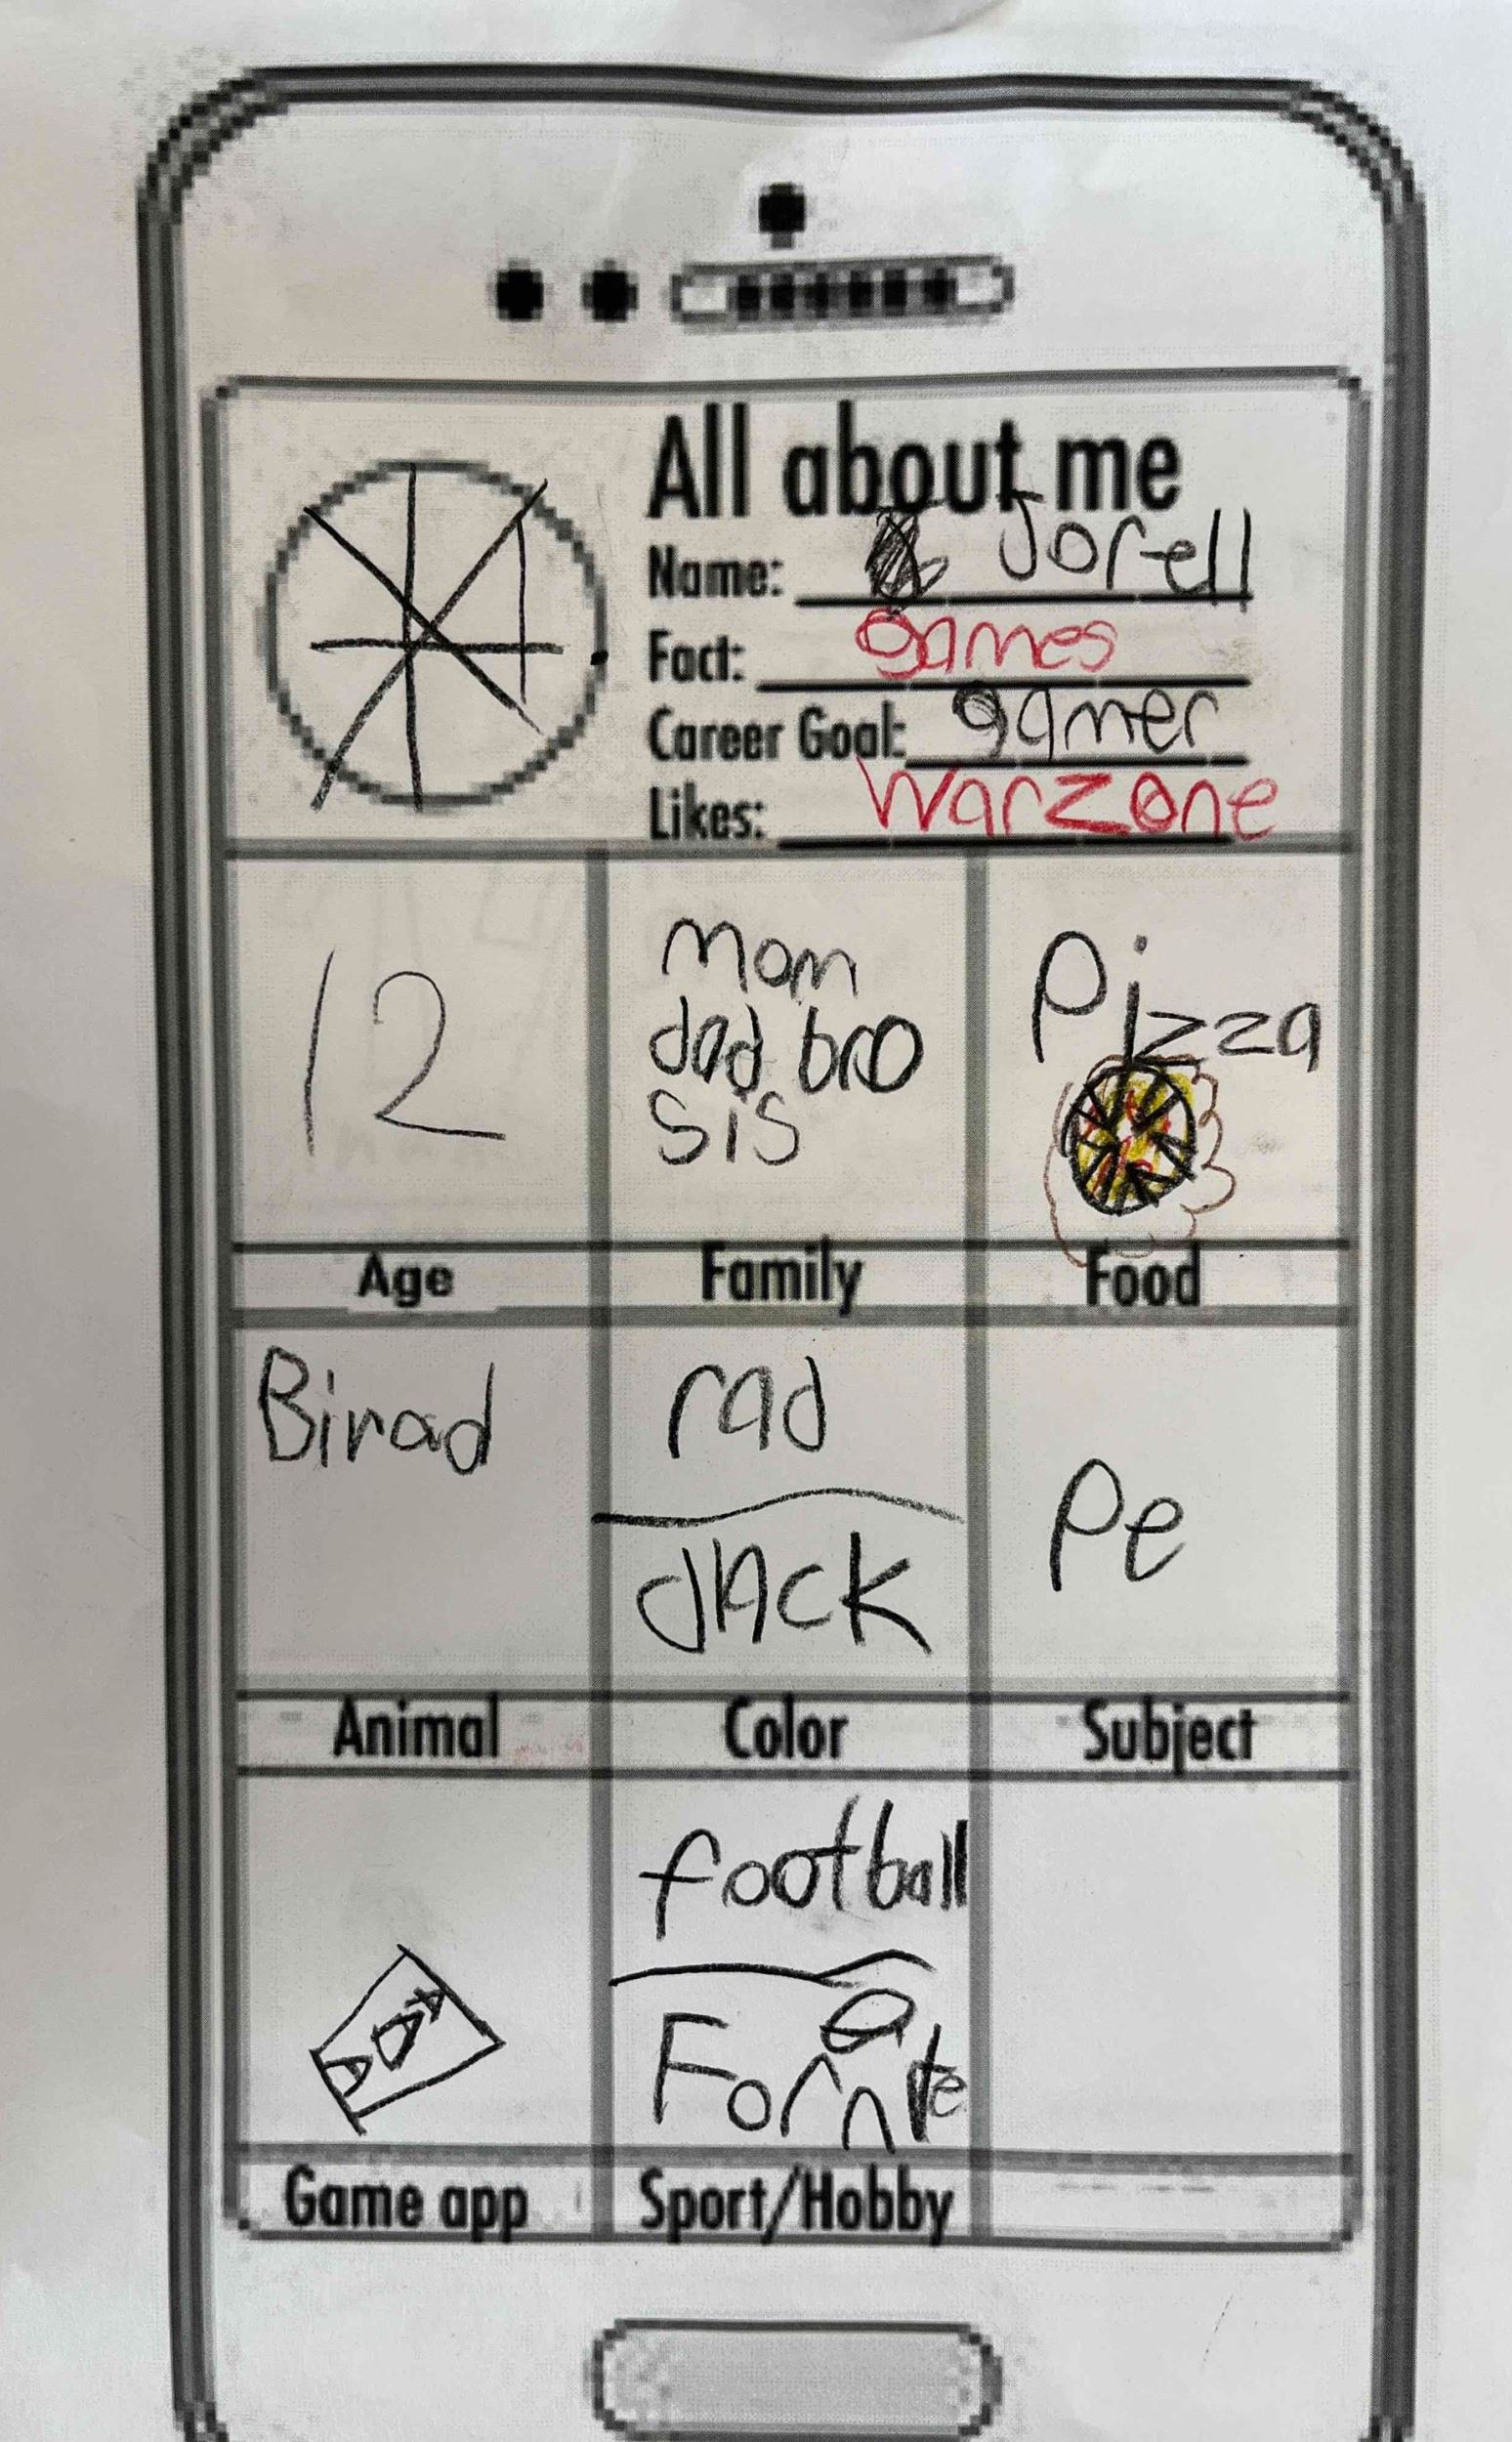 All about me
Name: Jorell
Fact: games
Career Goal: gamer
Likes: Warzone
12
mom
dad bro
sis
Pizza
Age
Family
Food
Birad
rad
Jack
Pe
Animal
Color
Subject
football
Fornite
Game app
Sport/Hobby